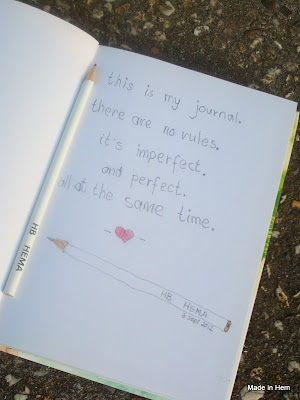 this is my journal.
there are no rules.
it's imperfect.
and perfect.
all at the same time.
HB HEMA
HB HEMA
6 Sept 2012
Made in Hem